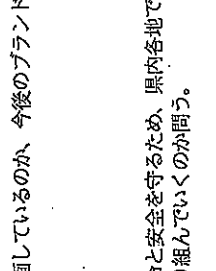 画しているのか、今後のブランド
と安全を守るため、県内各地で
組んでいくのか問う。